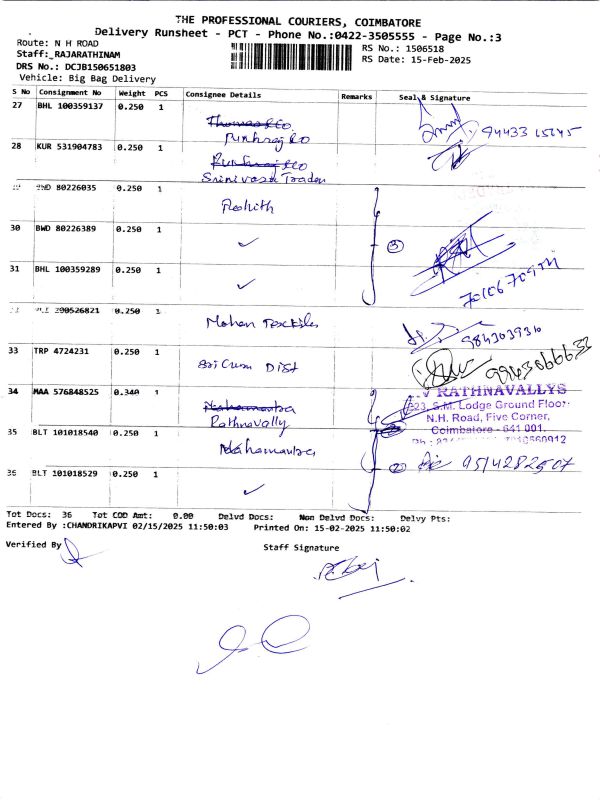 THE PROFESSIONAL COURIERS, COIMBATORE
Delivery Runsheet - PCT - Phone No.:0422-3505555 - Page No.:3
Route: N H ROAD
RS No.: 1506518
Staff: RAJARATHINAM
RS Date: 15-Feb-2025
DRS No.: DCJB150651803
Vehicle: Big Bag Delivery
S No Consignment No Weight PCS Consignee Details Remarks Seal & Signature
27 BHL 100359137 0.250 1
Thomas&Co.
9443315545
28 KUR 531904783 0.250 1
Srinivasa Traders
80226035 0.250 1
Rohith
30 BWD 80226389 0.250 1
✓ 3
31 BHL 100359289 0.250 1
✓
390526821 0.250 1
Mohan Textiles
9843039310
33 TRP 4724231 0.250 1
Sri Cum Dist
9943066633
34 MAA 576848525 0.340 1
V RATHNAVALLYS
Rathnavally
323, S.M. Lodge Ground Floor
N.H. Road, Five Corner,
35 BLT 101018540 0.250 1
Coimbatore - 641 001.
36 BLT 101018529 0.250 1
✓ 2 9514282507
Tot Docs: 36 Tot COD Amt: 0.00 Delvd Docs: Non Delvd Docs: Delvy Pts:
Entered By :CHANDRIKAPVI 02/15/2025 11:50:03 Printed On: 15-02-2025 11:50:02
Verified By
Staff Signature